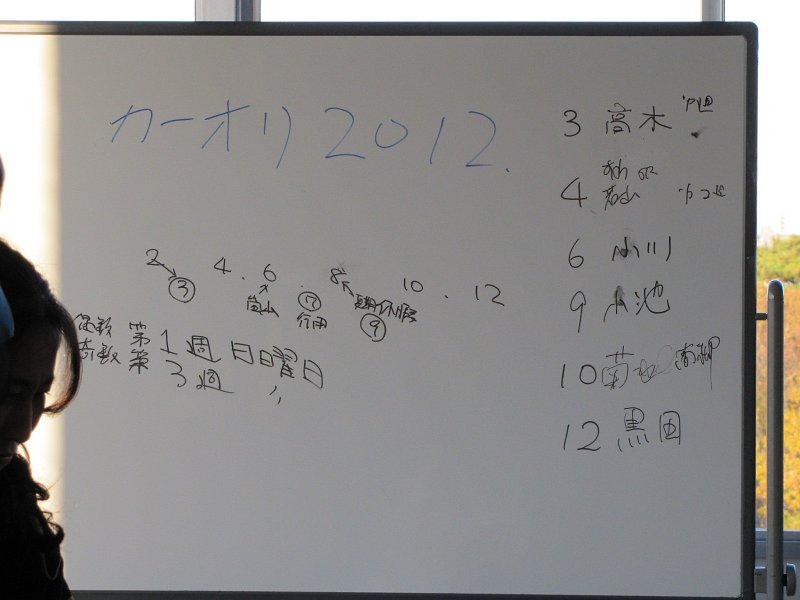 カーオリ2012.
2 4. 6. 8 10. 12
③ 嵐山 ⑦ 夏期休暇
⑨
偶数 第1週 日曜日
奇数 第3週 〃
3 高木
4 嵐山
6 小川
9 小池
10 菊
12 黒田